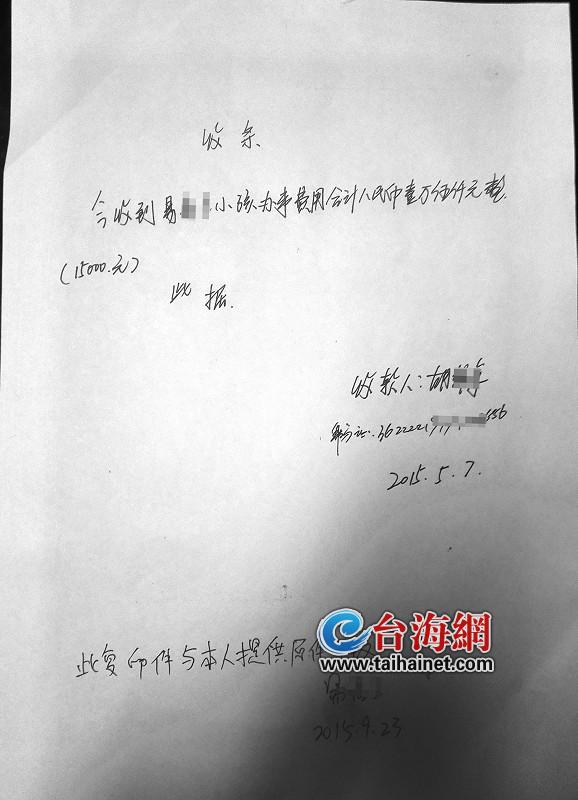 收条
今收到易 小孩办事费用合计人民币壹万伍仟元整.
(15000.元)
此据.
收款人:胡
身份证:36222219 656
2015.5.7.
此复印件与本人提供原件
台海網
www.taihainet.com
易
2015.9.23